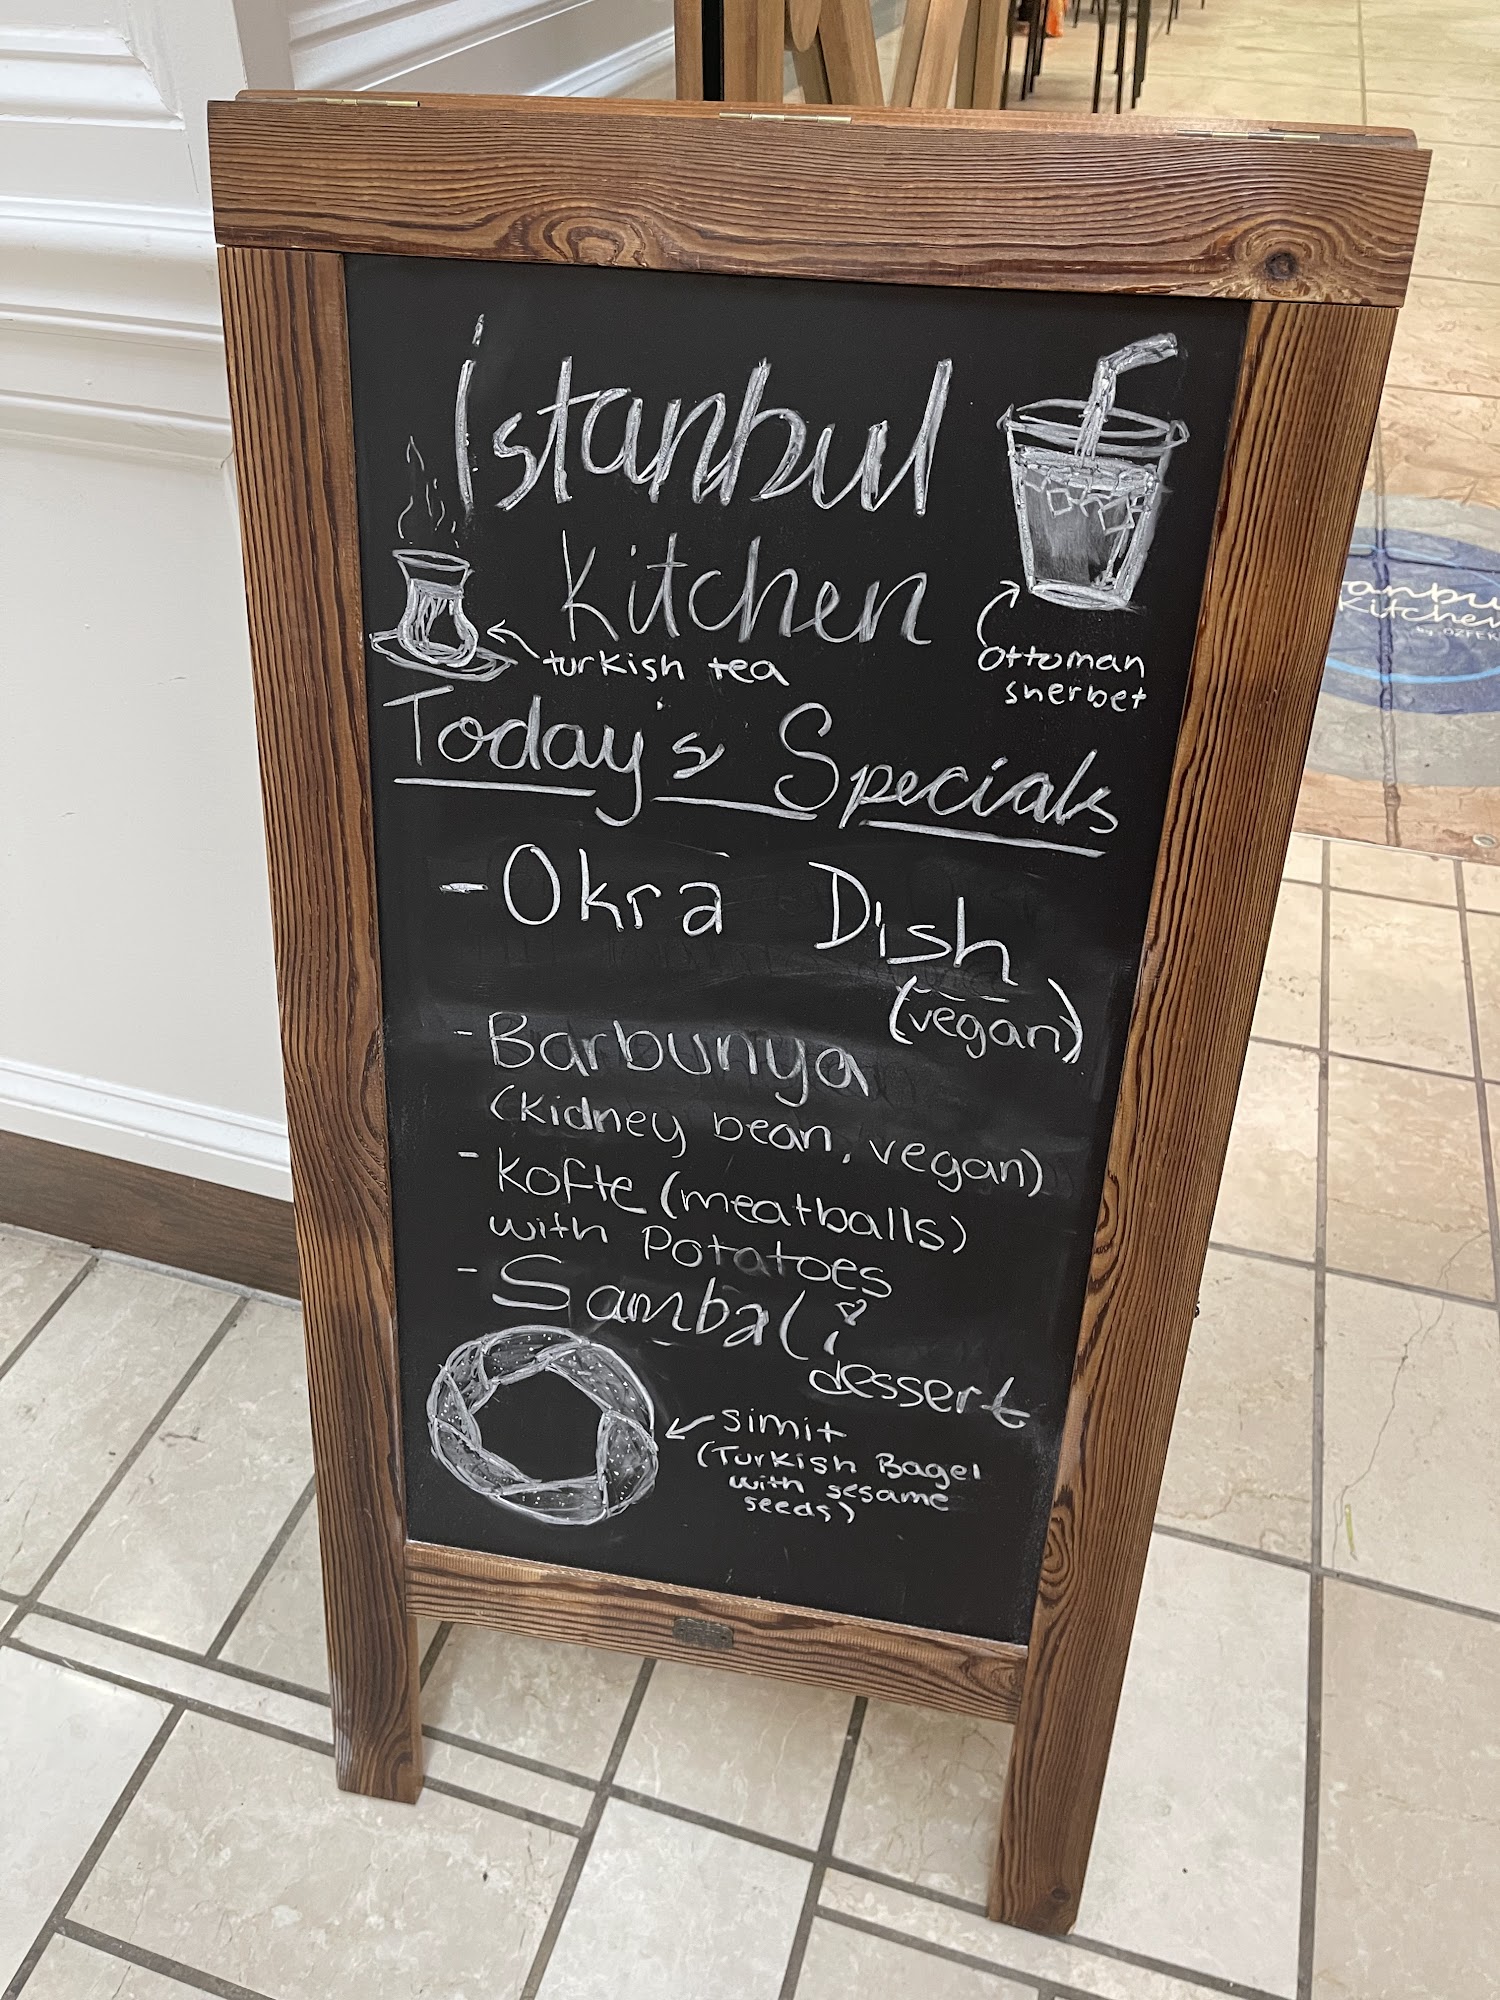 İstanbul
Kitchen
turkish tea
Ottoman
sherbet
Today's Specials
- Okra Dish
(vegan)
- Barbunya
(kidney bean, vegan)
- Kofte (meatballs)
with Potatoes
- Sambali
dessert
simit
(Turkish Bagel
with sesame
seeds)
Kitchen